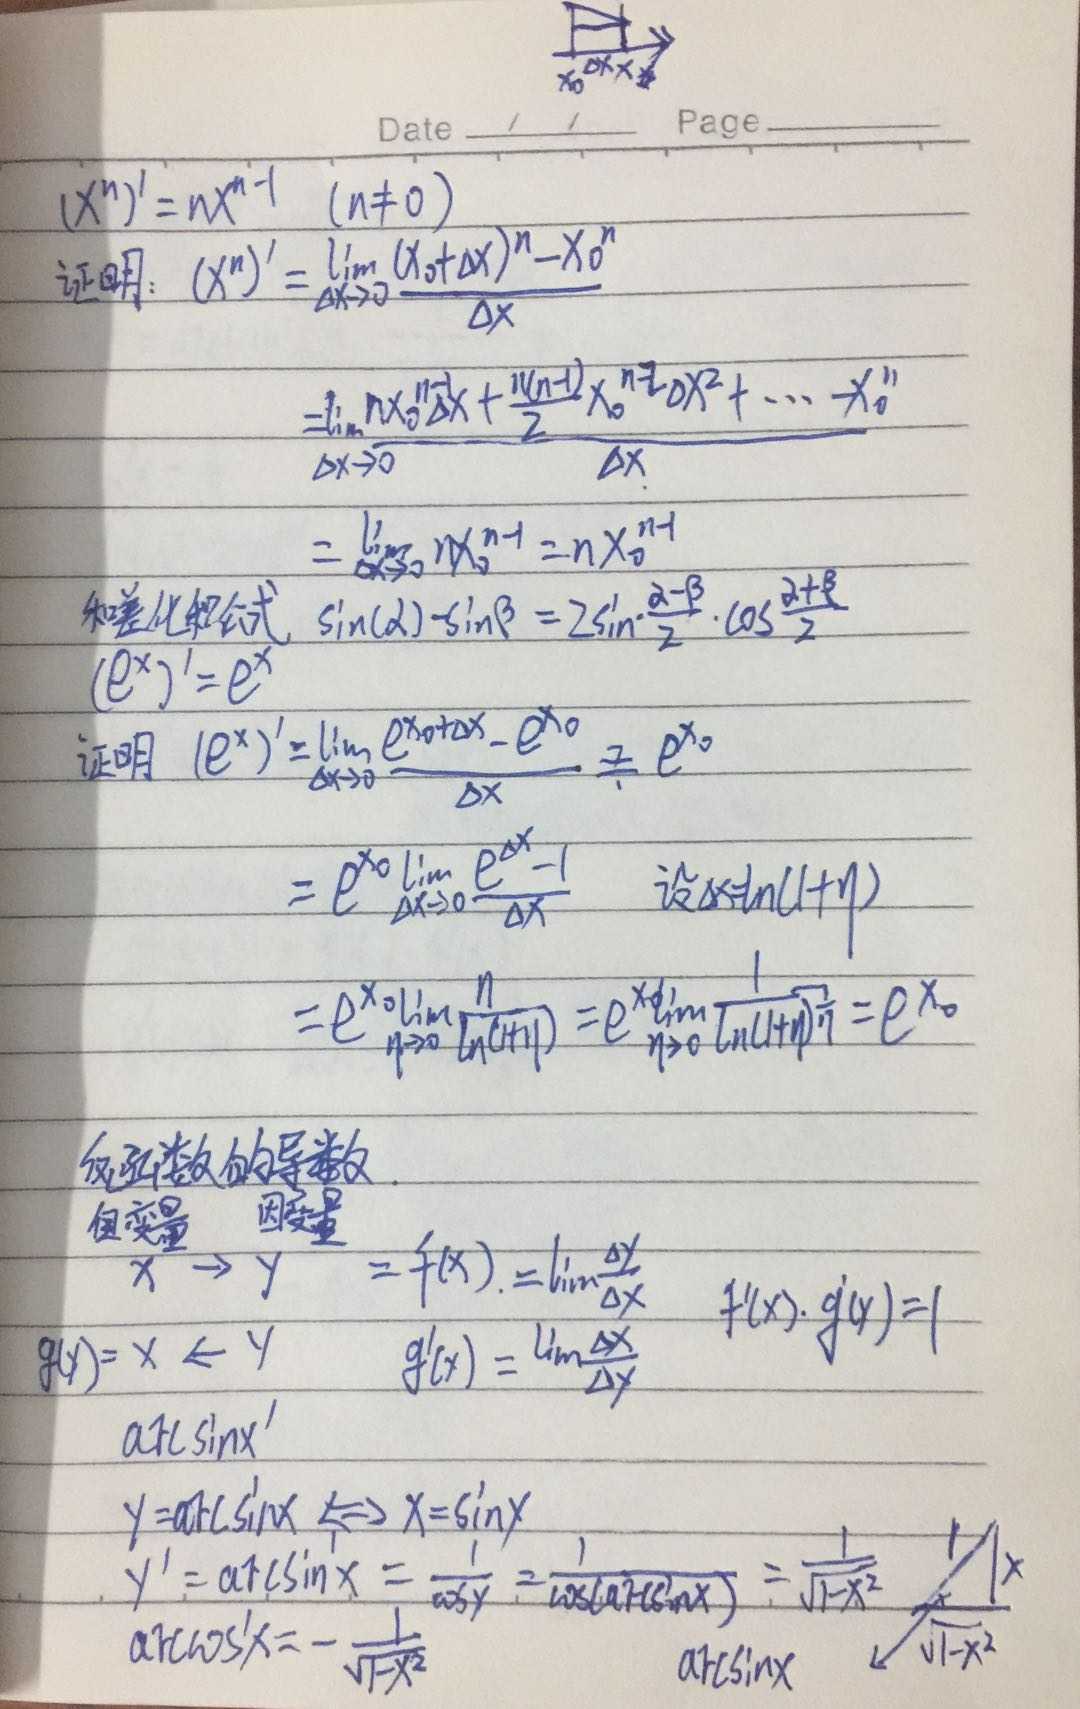 x₀ Δx x
Date / / Page
(xⁿ)' = nxⁿ⁻¹ (n≠0)
证明: (xⁿ)' = lim Δx→0 ((x₀+Δx)ⁿ - x₀ⁿ)/Δx
= lim Δx→0 (nx₀ⁿ⁻¹Δx + n(n-1)/2 x₀ⁿ⁻²Δx² + ... - x₀ⁿ)/Δx
= lim Δx→0 nx₀ⁿ⁻¹ = nx₀ⁿ⁻¹
和差化积公式 sin(α)-sinβ = 2sin·(α-β)/2·cos (α+β)/2
(eˣ)' = eˣ
证明 (eˣ)' = lim Δx→0 (e^(x₀+Δx) - e^(x₀))/Δx = e^(x₀)
= e^(x₀) lim Δx→0 (e^(Δx) - 1)/Δx 设Δx=ln(1+η)
= e^(x₀) lim η→0 η/ln(1+η) = e^(x₀) lim η→0 1/ln(1+η)^(1/η) = e^(x₀)
反函数的导数.
自变量 因变量
x → y = f(x). = lim Δy/Δx
f'(x)·g'(y)=1
g(y)= x ← y g'(x) = lim Δx/Δy
arcsinx'
y=arcsinx ⇔ x=siny
y' = arcsin'x = 1/cosy = 1/cos(arcsinx) = 1/√(1-x²)
1 x
√(1-x²)
arccos'x = - 1/√(1-x²)
arcsinx